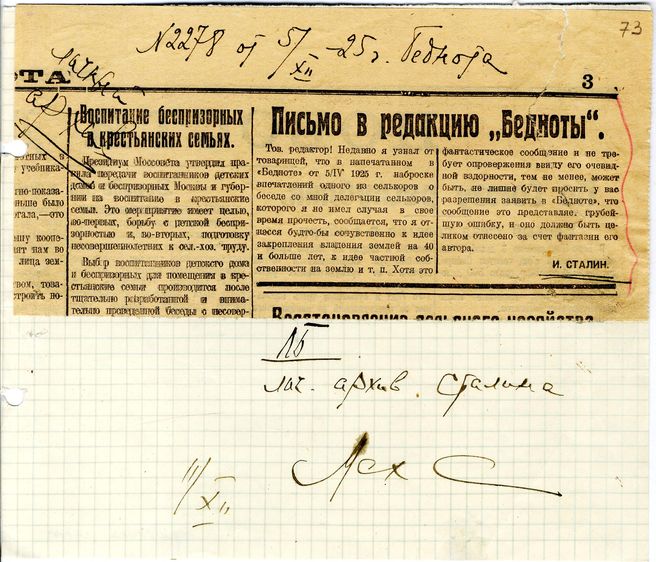 73
№2278 от 5/XII-25г. Беднота
личный
архив
ОТА
3
Воспитание беспризорных
в крестьянских семьях.
Президиум Моссовета утвердил пра-
вила передачи воспитанников детских
домов и беспризорных Москвы и губер-
нии на воспитание в крестьянские
семьи. Это мероприятие имеет целью,
во-первых, борьбу с детской беспри-
зорностью и, во-вторых, подготовку
несовершеннолетних к сел.-хоз. труду.
Выбор воспитанников детского дома
и беспризорных для помещения в кре-
стьянские семьи производится после
тщательно разработанной и внима-
тельно проведенной беседы с несовер-
Письмо в редакцию „Бедноты“.
Тов. редактор! Недавно я узнал от
товарищей, что в напечатанном в
«Бедноте» от 5/IV 1925 г. наброске
впечатлений одного из селькоров о
беседе со мной делегации селькоров,
которого я не имел случая в свое
время прочесть, сообщается, что я от-
несся будто-бы сочувственно к идее
закрепления владения землей на 40
и больше лет, к идее частной соб-
ственности на землю и т. п. Хотя это
фантастическое сообщение и не тре-
бует опровержения ввиду его очевид-
ной вздорности, тем не менее, может
быть, не лишне будет просить у вас
разрешения заявить в «Бедноте», что
сообщение это представляе. грубей-
шую ошибку, и оно должно быть це-
ликом отнесено за счет фантазии его
автора.
И. СТАЛИН.
Восстановление сельского хозяйства
лич. архив Сталина
11/XII